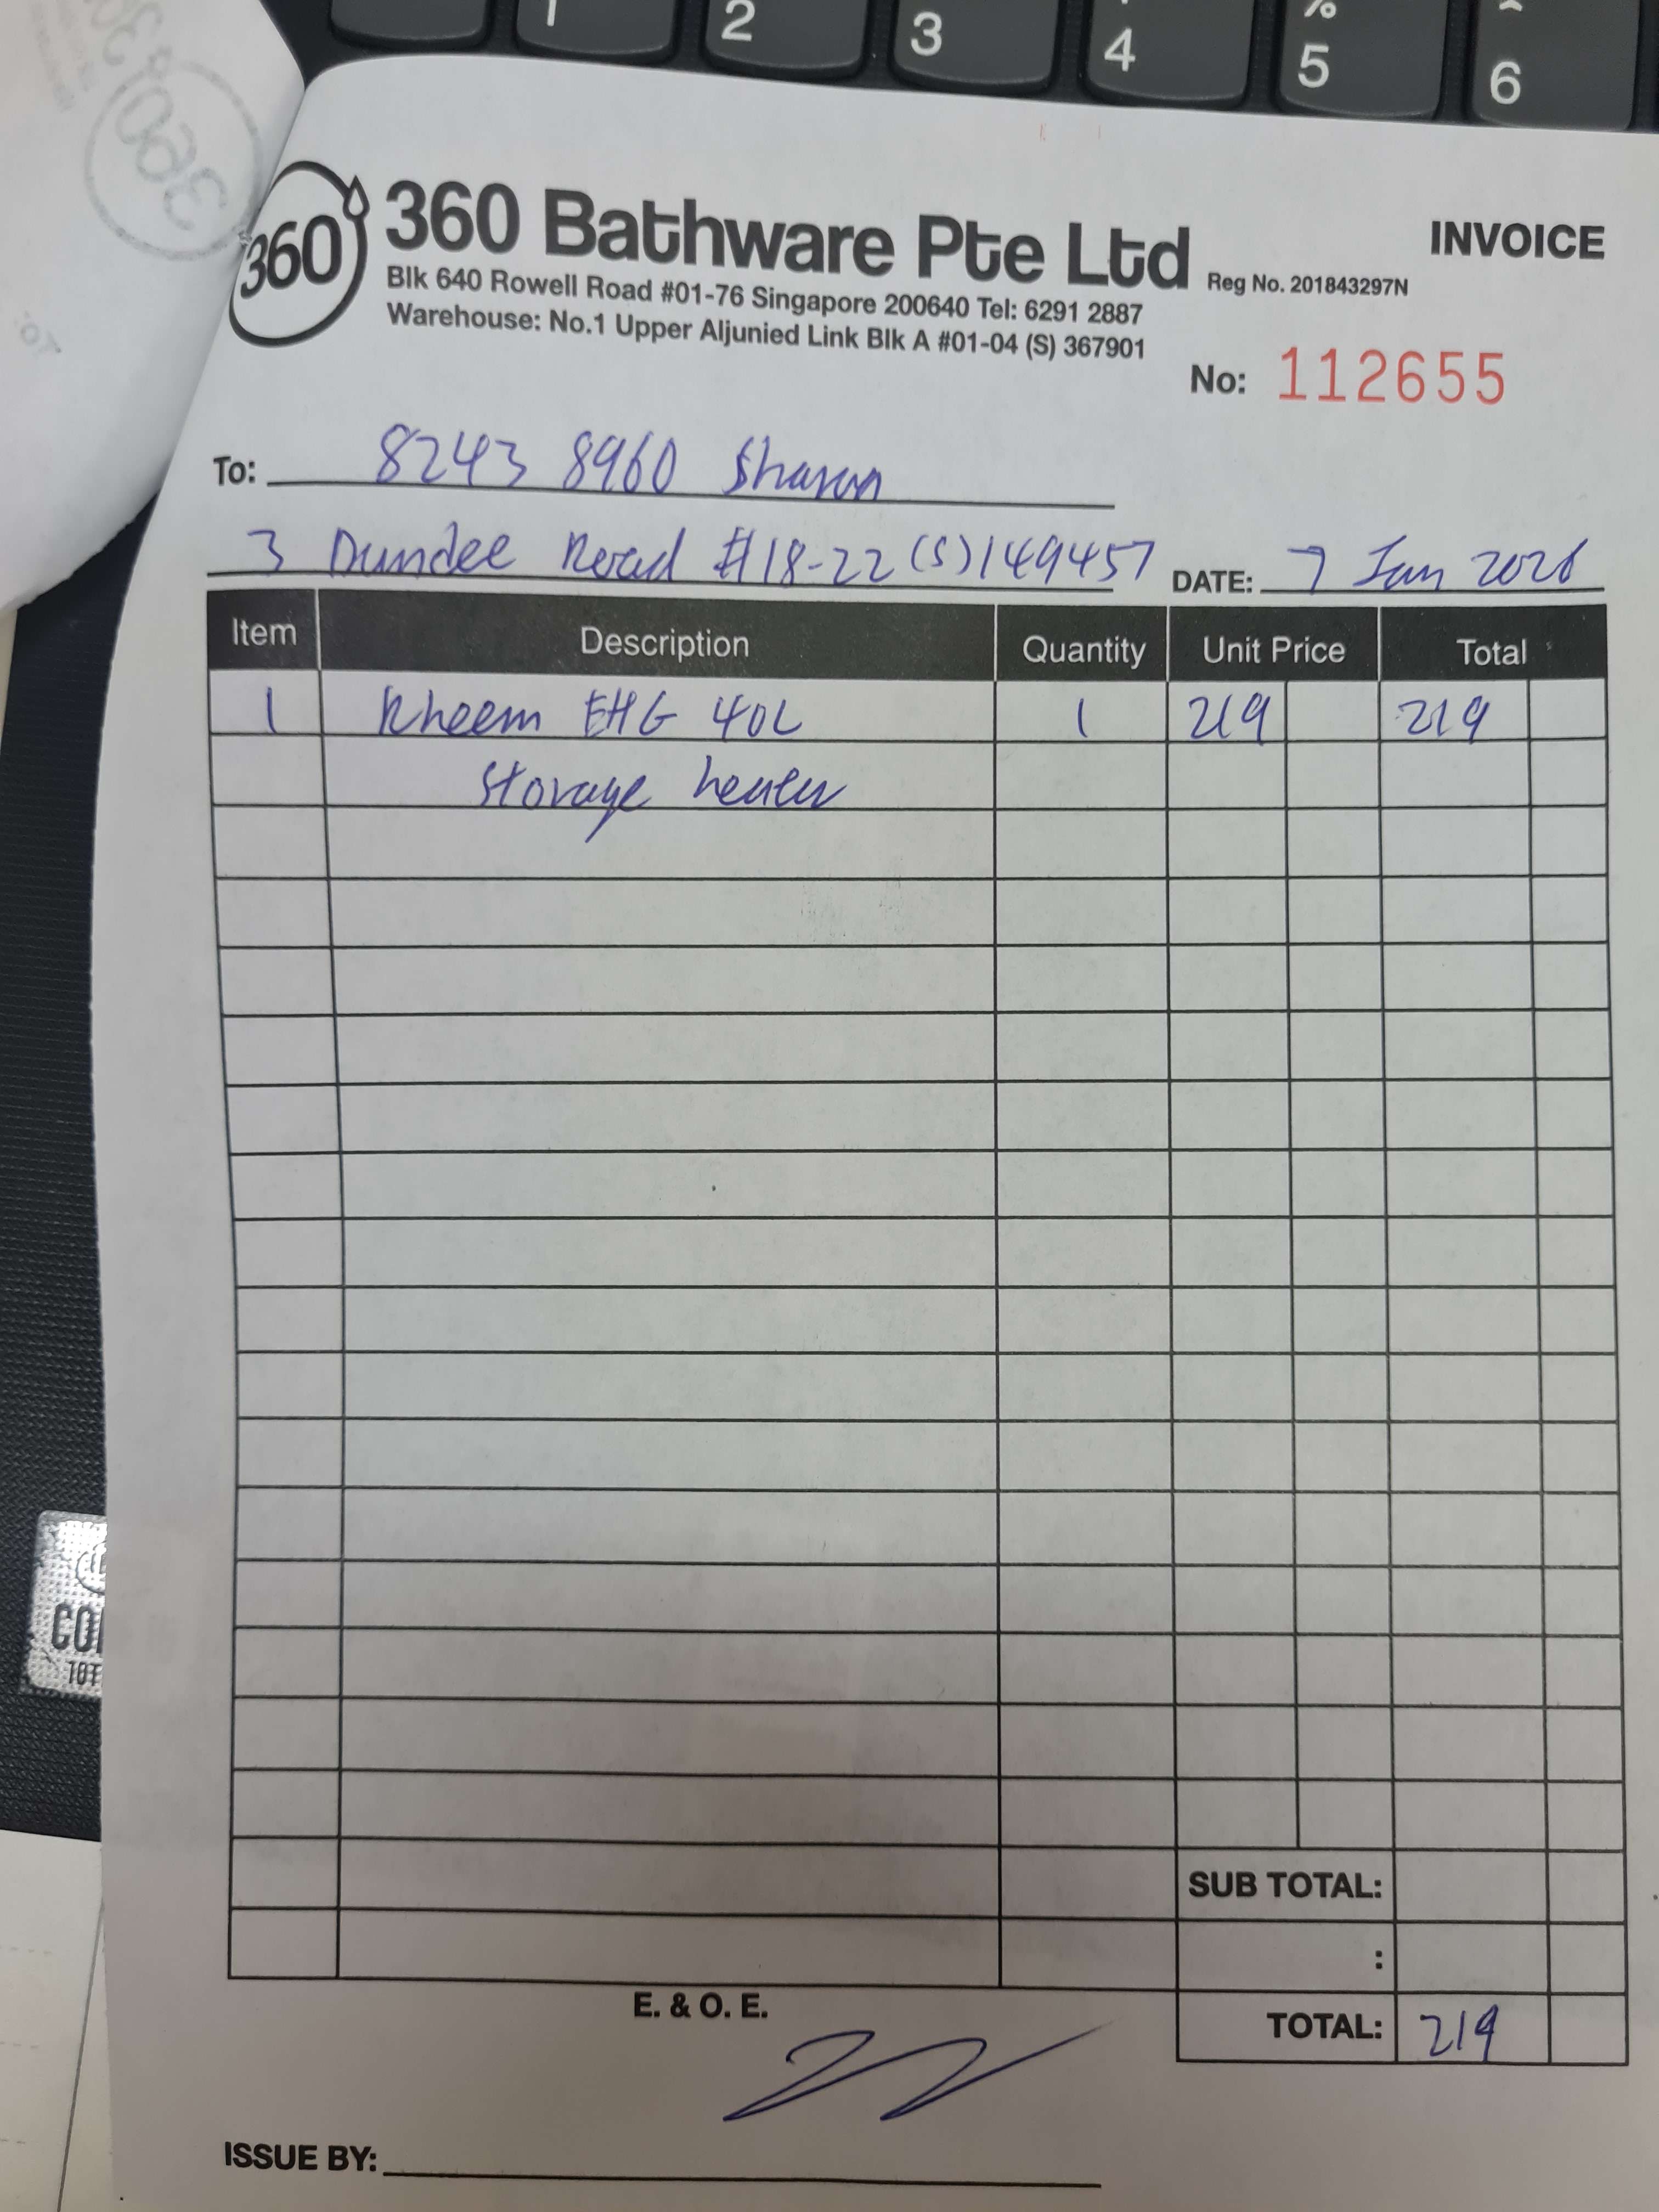 1 2 3 4 % 5 ^ 6
360
360 Bathware Pte Ltd
INVOICE
Reg No. 201843297N
Blk 640 Rowell Road #01-76 Singapore 200640 Tel: 6291 2887
Warehouse: No.1 Upper Aljunied Link Blk A #01-04 (S) 367901
No: 112655
To: 8243 8960 Sharon
3 Dundee Road #18-22 (S)149457 DATE: 7 Jan 2026
Item Description Quantity Unit Price Total
1 Rheem EHG 40L 1 219 219
Storage heater
SUB TOTAL:
:
E. & O. E.
TOTAL: 219
ISSUE BY: